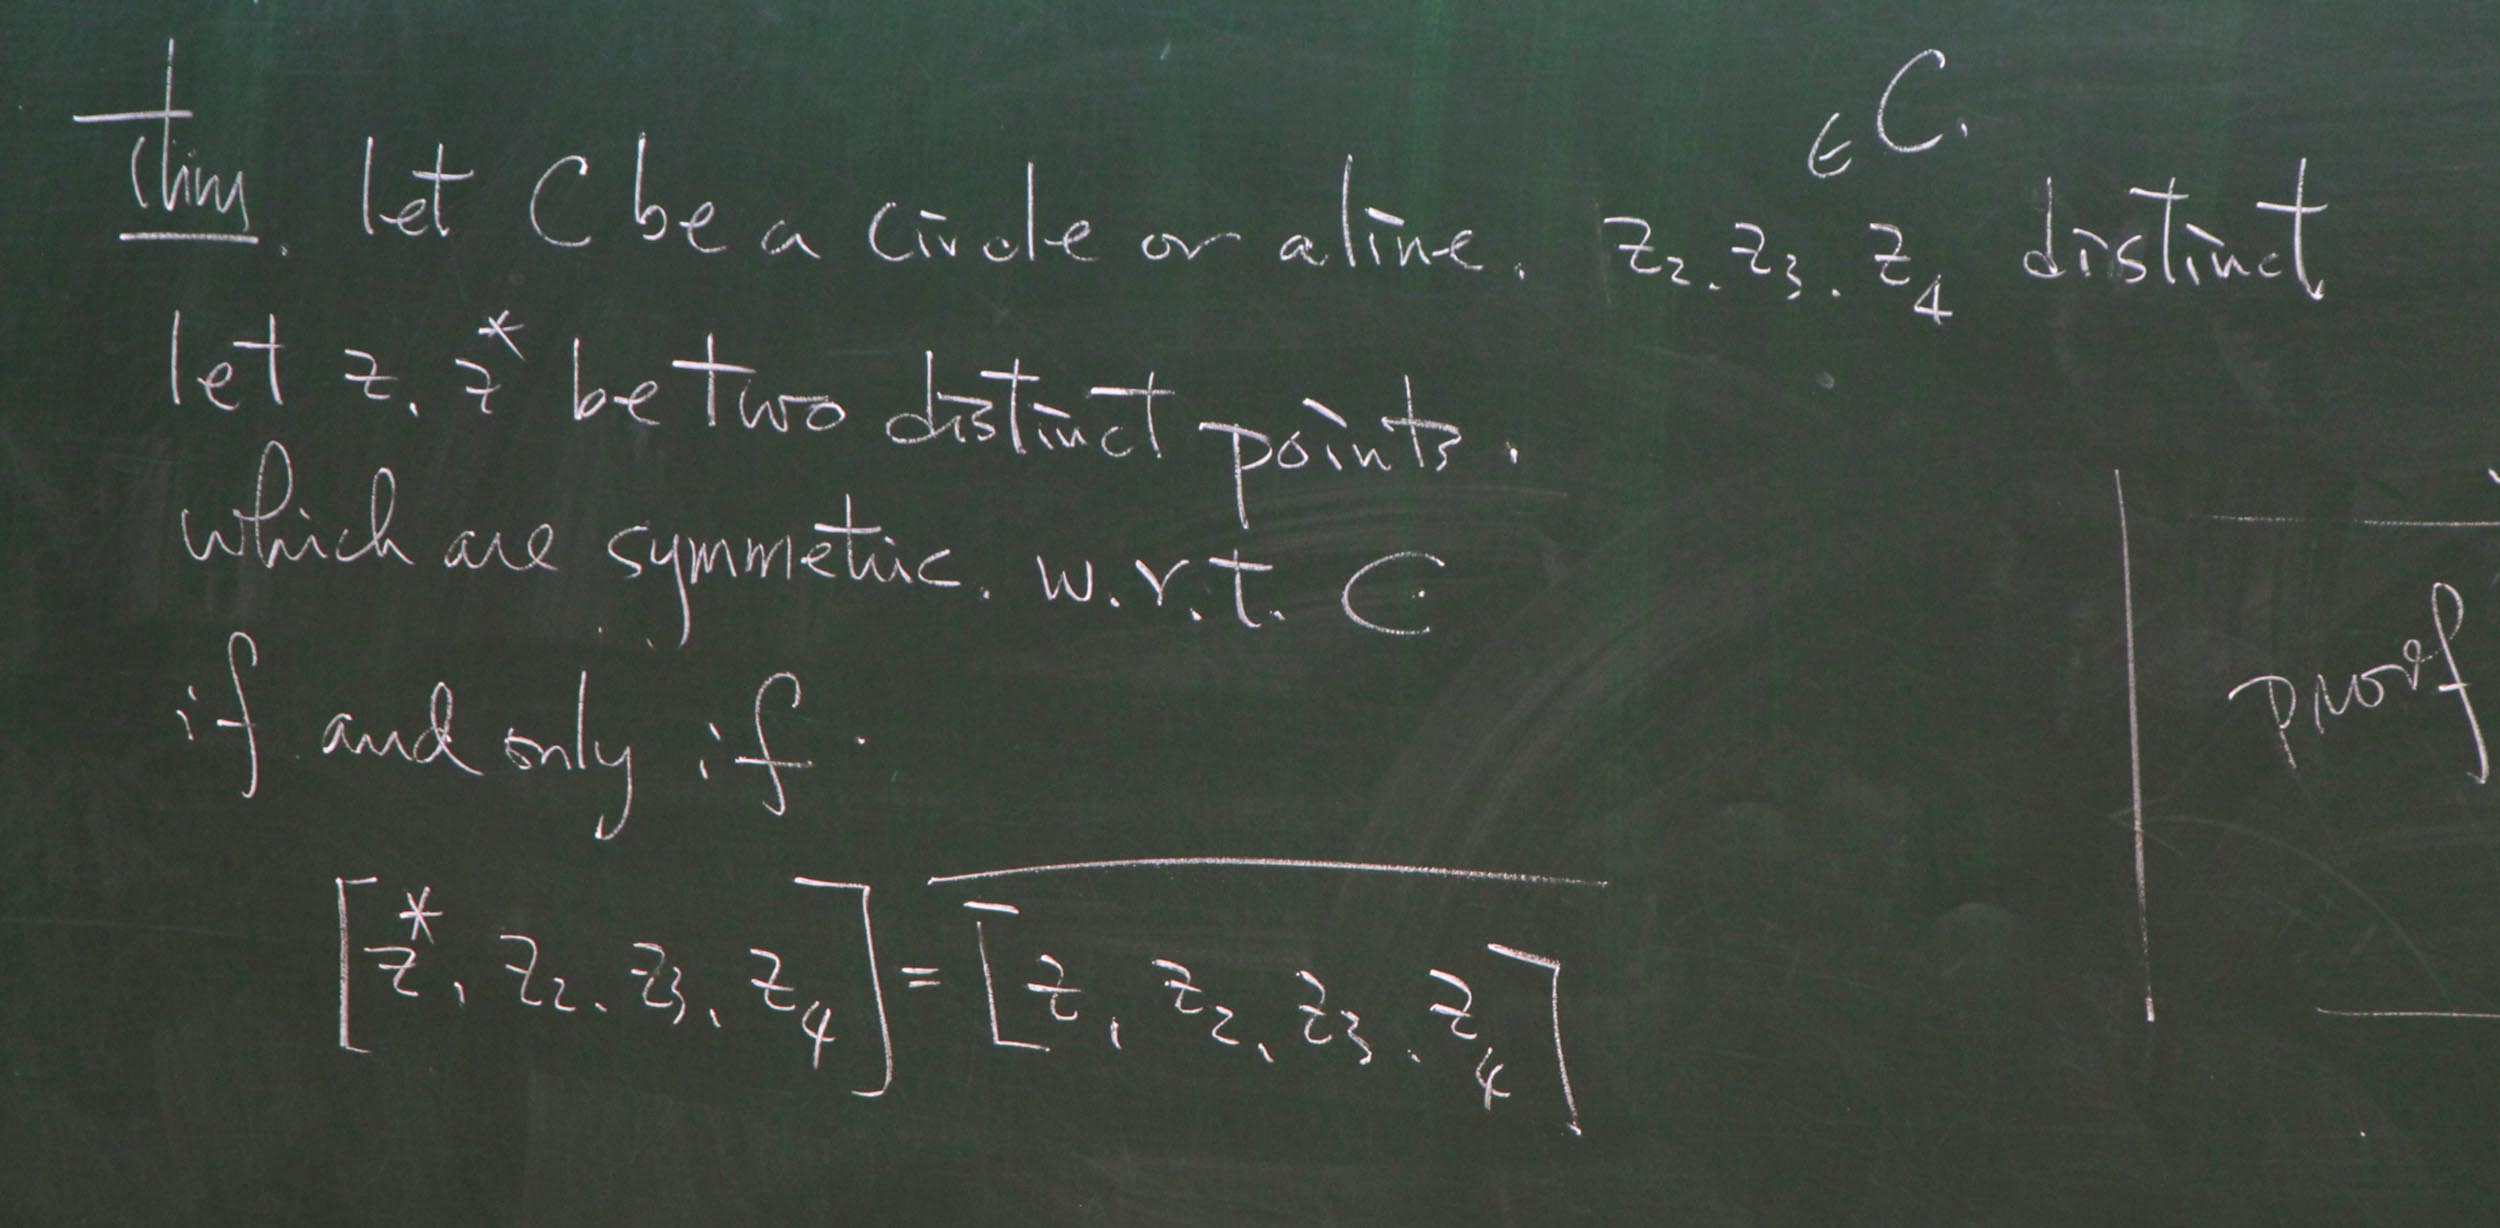 Thm. let C be a circle or a line. z₂. z₃. z₄ ∈ C. distinct
let z. z* be two distinct points.
which are symmetric. w.r.t. C
if and only if.
[z*, z₂. z₃, z₄] = \overline{[z, z₂, z₃. z₄]}
proof